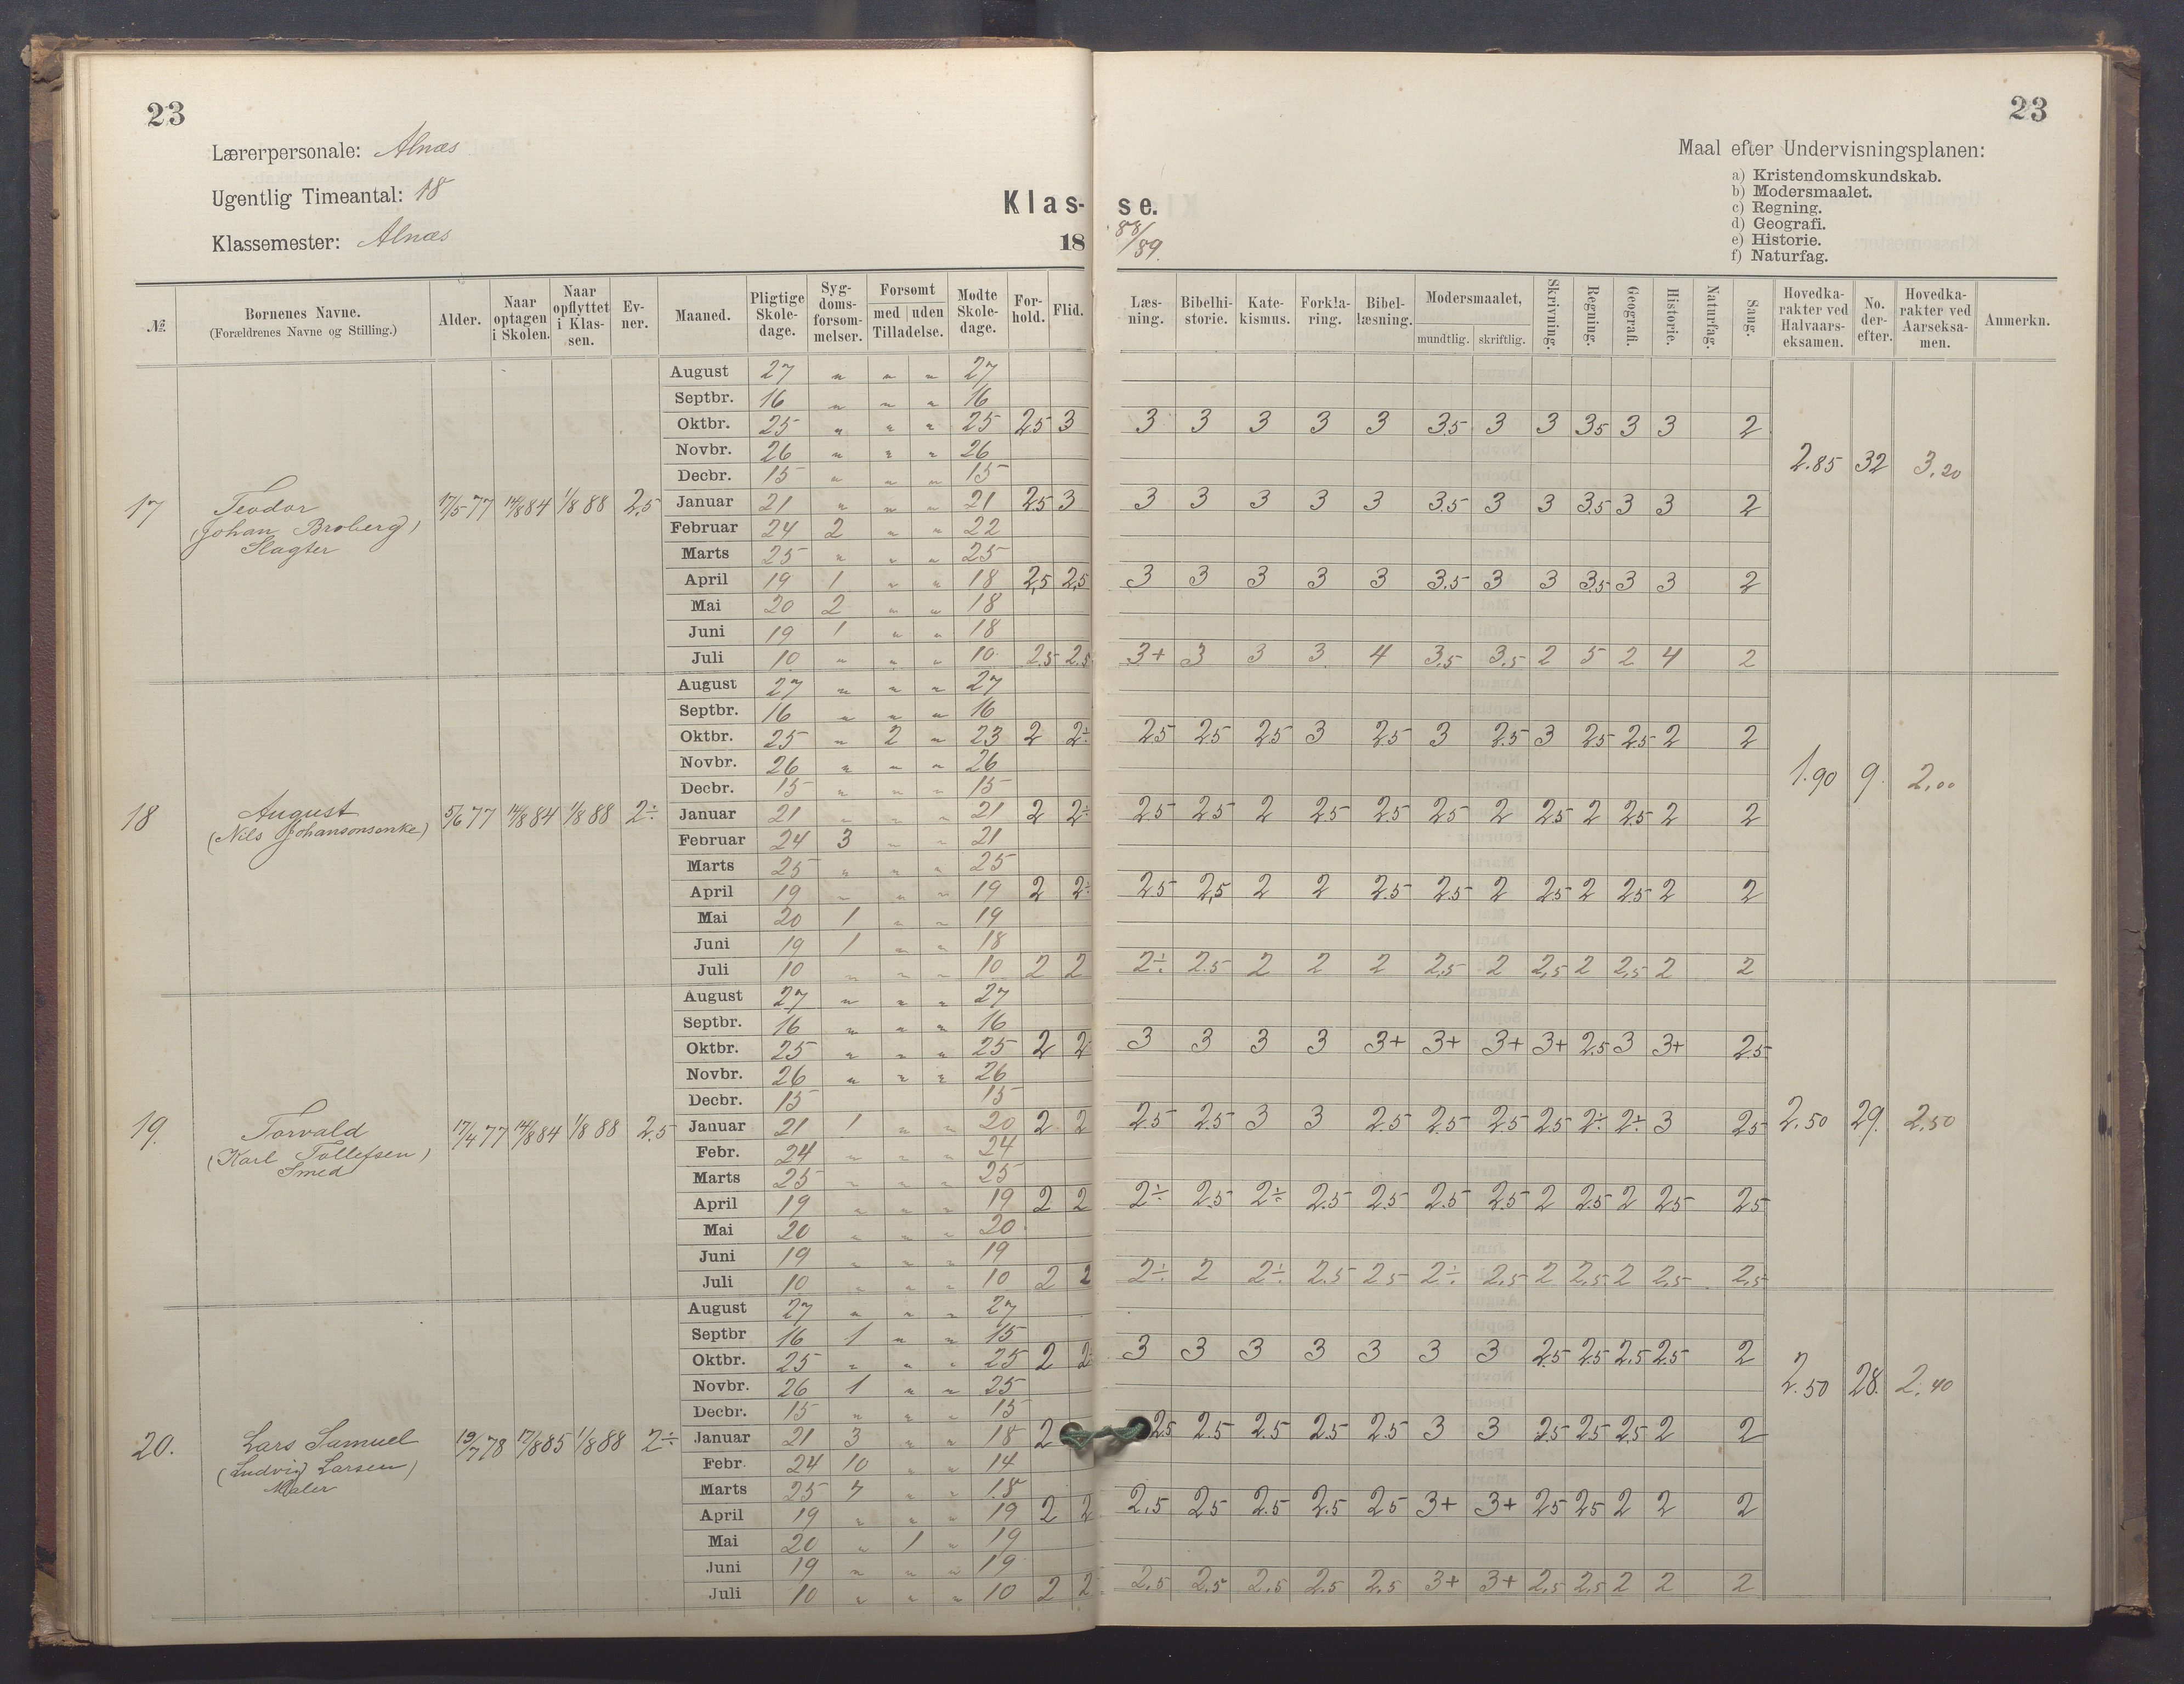 23
23
Lærerpersonale: Alnæs
Ugentlig Timeantal: 18
Klassemester: Alnæs
Klas- se.
18 88/89.
Maal efter Undervisningsplanen:
a) Kristendomskundskab.
b) Modersmaalet.
c) Regning.
d) Geografi.
e) Historie.
f) Naturfag.
№. Børnenes Navne. (Forældrenes Navne og Stilling.) Alder. Naar optagen i Skolen. Naar opflyttet i Klassen. Evner. Maaned. Pligtige Skoledage. Sygdomsforsømmelser. Forsømt med uden Tilladelse. Mødte Skoledage. Forhold. Flid. Læsning. Bibelhistorie. Katekismus. Forklaring. Bibellæsning. Modersmaalet, mundtlig. skriftlig. Skrivning. Regning. Geografi. Historie. Naturfag. Sang. Hovedkarakter ved Halvaarseksamen. No. derefter. Hovedkarakter ved Aarseksamen. Anmerkn.
17 Teodor (Johan Broberg) Slagter 17/5 77 14/8 84 1/8 88 2,5 2.85 32 3.20
August 27 " " " 27
Septbr. 16 " " " 16
Oktbr. 25 " " " 25 2,5 3 3 3 3 3 3 3.5 3 3 3.5 3 3 2
Novbr. 26 " " " 26
Decbr. 15 " " " 15
Januar 21 " " " 21 2,5 3 3 3 3 3 3 3.5 3 3 3.5 3 3 2
Februar 24 2 " " 22
Marts 25 " " " 25
April 19 1 " " 18 2,5 2,5 3 3 3 3 3 3.5 3 3 3.5 3 3 2
Mai 20 2 " " 18
Juni 19 1 " " 18
Juli 10 " " " 10 2.5 2.5 3+ 3 3 3 4 3.5 3.5 2 5 2 4 2
18 August (Nils Johansonsenke) 5/6 77 14/8 84 1/8 88 2÷ 1.90 9. 2,00
August 27 " " " 27
Septbr. 16 " " " 16
Oktbr. 25 " 2 " 23 2 2÷ 2.5 2.5 2.5 3 2.5 3 2.5 3 2.5 2.5 2 2
Novbr. 26 " " " 26
Decbr. 15 " " " 15
Januar 21 " " " 21 2 2÷ 2.5 2.5 2 2.5 2.5 2.5 2 2.5 2 2.5 2 2
Februar 24 3 " " 21
Marts 25 " " " 25
April 19 " " " 19 2 2÷ 2.5 2,5 2 2 2.5 2.5 2 2.5 2 2.5 2 2
Mai 20 1 " " 19
Juni 19 1 " " 18
Juli 10 " " " 10 2 2 2÷ 2.5 2 2 2 2.5 2 2,5 2 2,5 2 2
19. Torvald (Karl Tollefsen) Smed 17/4 77 14/8 84 1/8 88 2.5 2.50 29. 2,50
August 27 " " " 27
Septbr. 16 " " " 16
Oktbr. 25 " " " 25 2 2 3 3 3 3 3+ 3+ 3+ 3+ 2.5 3 3+ 2.5
Novbr. 26 " " " 26
Decbr. 15 15
Januar 21 1 " " 20 2 2 2.5 2.5 3 3 2.5 2.5 2.5 2.5 2÷ 2÷ 3 2.5
Febr. 24 " " " 24
Marts 25 " " " 25
April 19 " " " 19 2 2 2÷ 2.5 2÷ 2.5 2.5 2.5 2.5 2 2.5 2 2.5 2.5
Mai 20 " " " 20
Juni 19 " " " 19
Juli 10 " " " 10 2 2 2÷ 2 2÷ 2.5 2.5 2÷ 2.5 2 2.5 2 2.5 2,5
20. Lars Samuel (Ludvig Larsen) Maler 19/7 78 17/8 85 1/8 88 2÷ 2.50 28. 2,40
August 27 " " " 27
Septbr 16 1 " " 15
Oktbr. 25 " " " 25 2 2÷ 3 3 3 3 3 3 3 2.5 2.5 2.5 2.5 2
Novbr. 26 1 " " 25
Decbr. 15 " " " 15
Januar 21 3 " " 18 2 2.5 2.5 2.5 2.5 2.5 3 3 2.5 2.5 2.5 2 2
Febr. 24 10 " " 14
Marts 25 7 " " 18
April 19 " " " 19 2 2 2.5 2.5 2.5 2.5 2.5 3+ 3+ 2.5 2.5 2 2 2
Mai 20 " 1 " 19
Juni 19 " " " 19
Juli 10 " " " 10 2 2 2.5 2.5 2.5 2.5 2.5 3+ 3+ 2,5 2,5 2 2 2